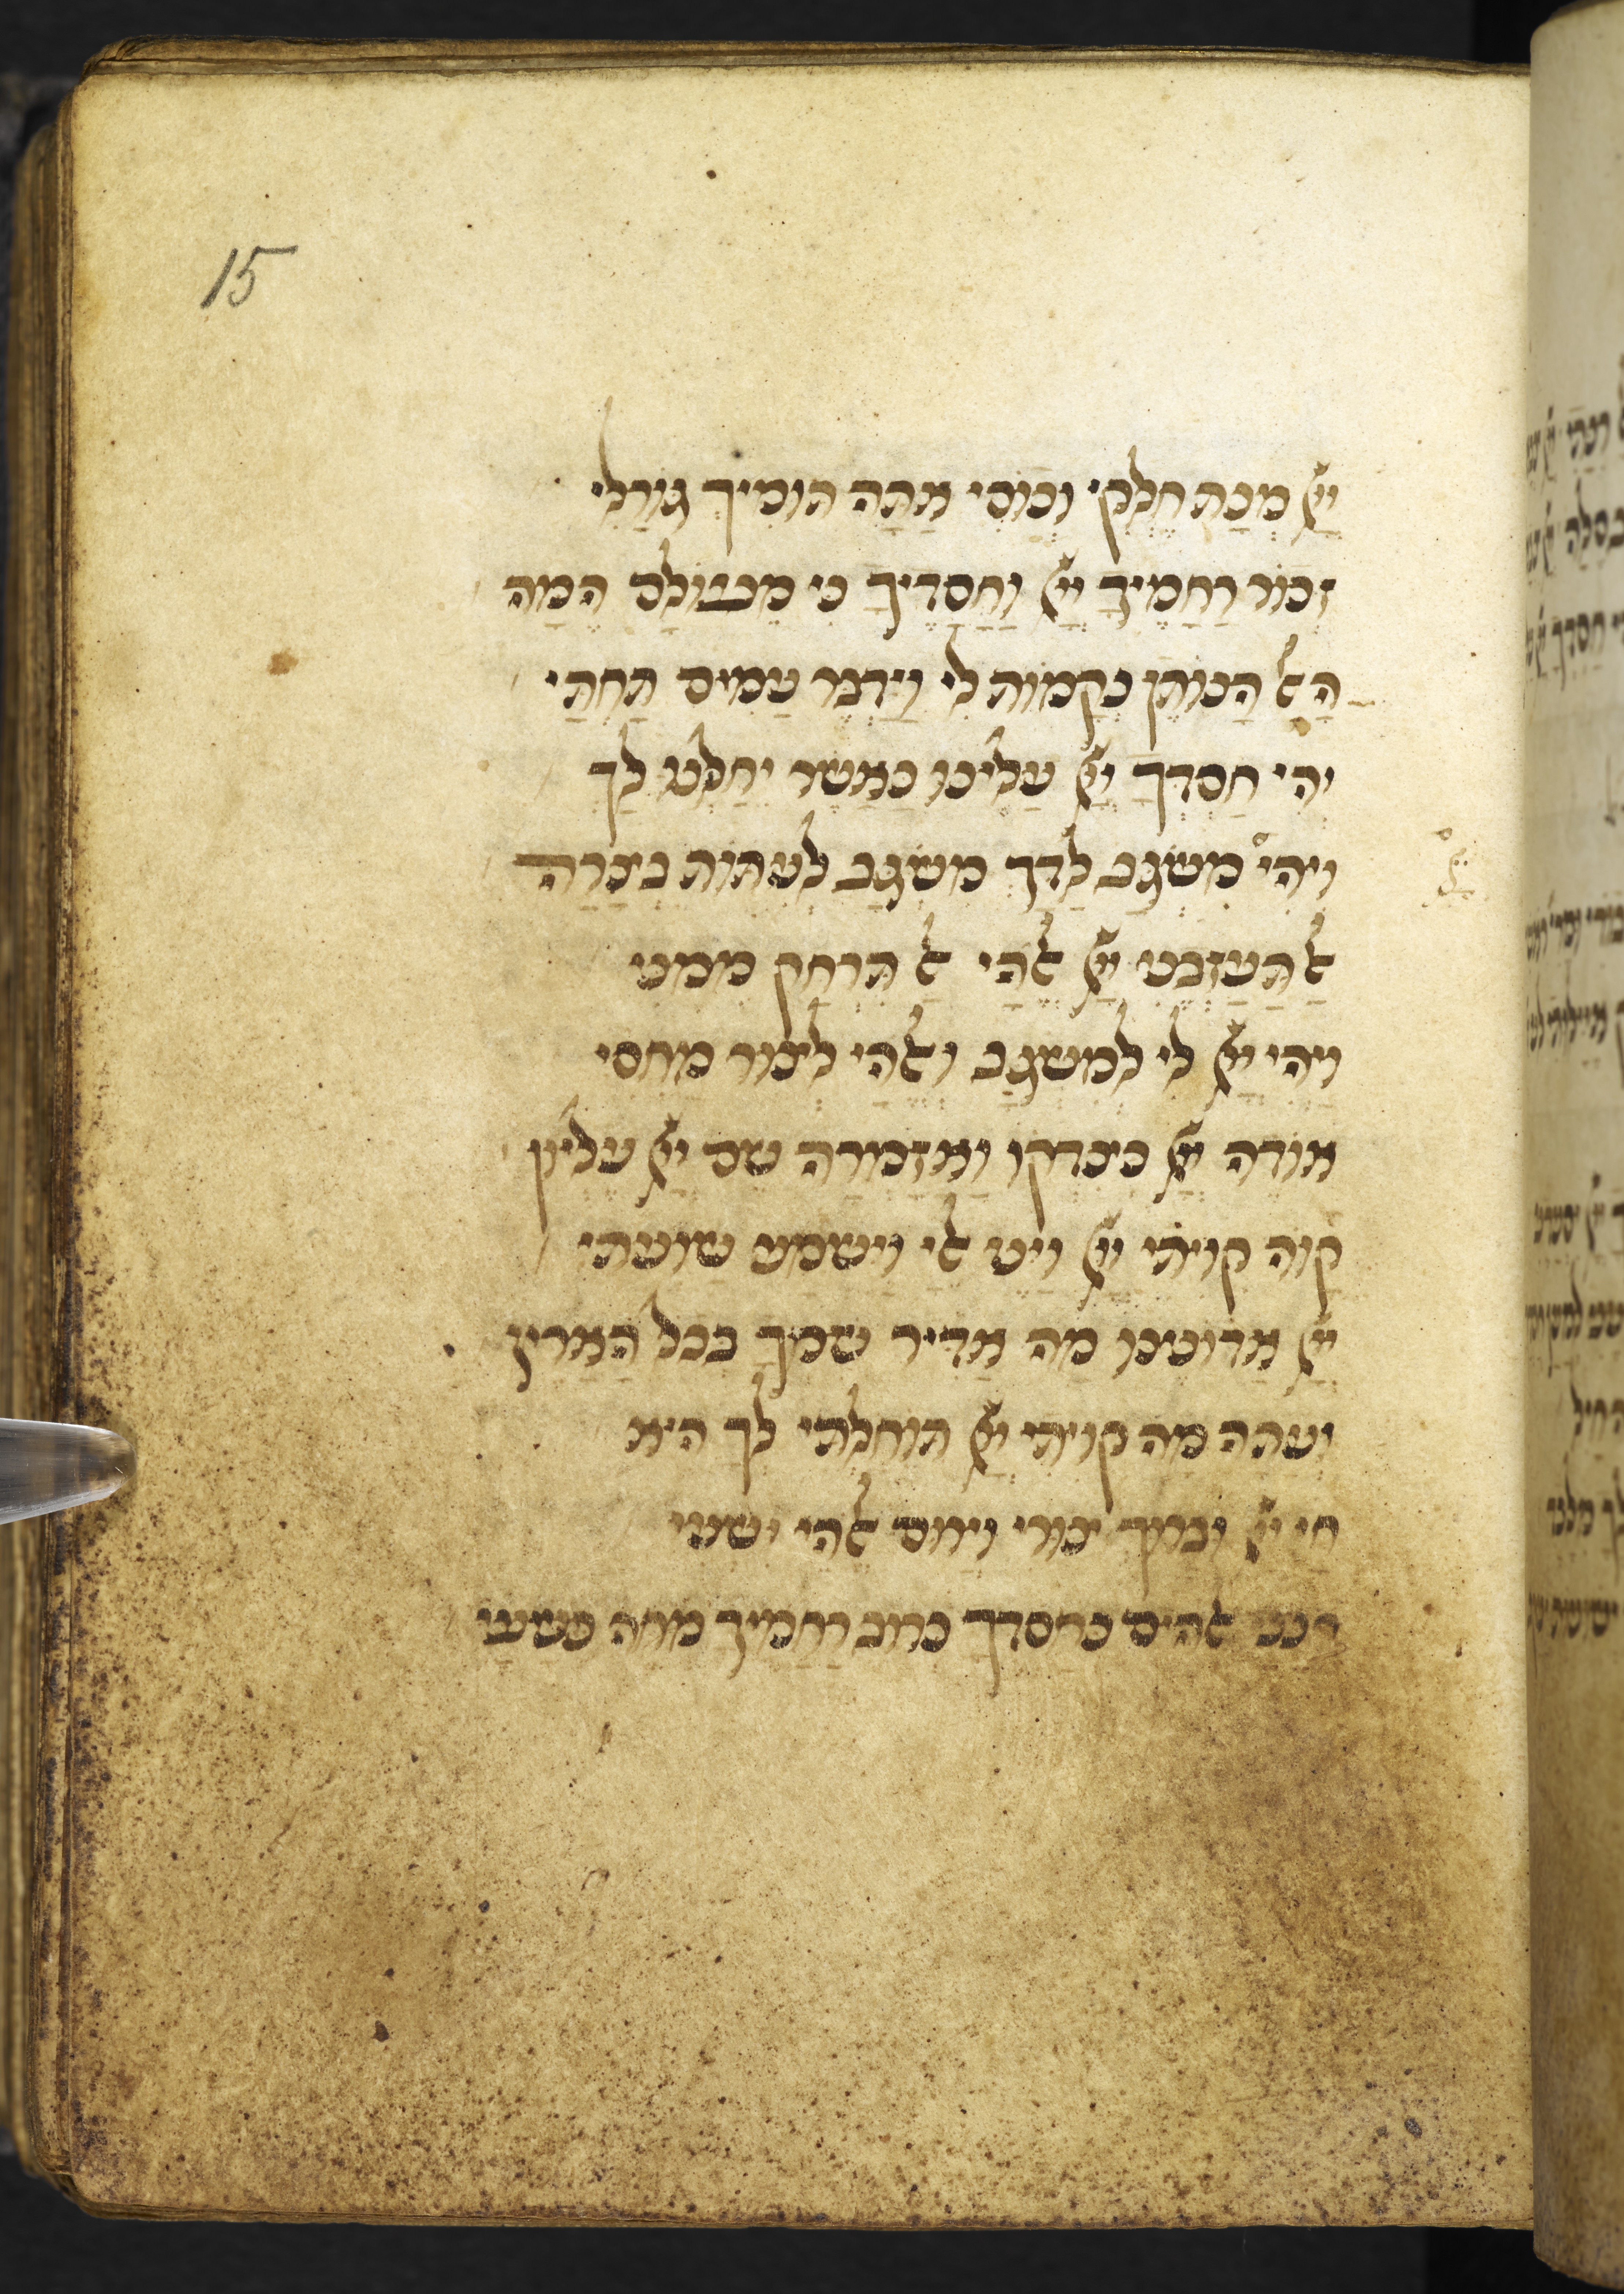 15
ייָ מְנָת חֶלְקִי וְכוֹסִי אַתָּה תּוֹמִיךְ גּוֹרָלִי
זְכוֹר רַחֲמֶיךָ ייָ וַחֲסָדֶיךָ כִּי מֵעוֹלָם הֵמָּה
הָאל הַנּוֹתֵן נְקָמוֹת לִי וַיַּדְבֵּר עַמִּים תַּחְתָּי
יְהִי חַסְדְּךָ ייָ עָלֵינוּ כַּאֲשֶׁר יִחַלְנוּ לָךְ
וִיהִי מִשְׂגָּב לַדָּךְ מִשְׂגָּב לְעִתּוֹת בַּצָּרָה
אל תַּעַזְבֵנִי ייָ אלהַי אל תִּרְחַק מִמֶּנִּי
וַיְהִי ייָ לִי לְמִשְׂגָּב ואלהַי לְצוּר מַחְסִי
אוֹדֶה ייָ כְּצִדְקוֹ וַאֲזַמְּרָה שֵׁם ייָ עֶלְיוֹן
קַוֹּה קִוִּיתִי ייָ וַיֵּט אלַי וַיִּשְׁמַע שַׁוְעָתִי
ייָ אֲדוֹנֵינוּ מָה אַדִּיר שִׁמְךָ בְּכָל הָאָרֶץ
וְעַתָּה מַה קִּוִּיתִי ייָ תּוֹחַלְתִּי לְךָ הִיא
חַי ייָ וּבָרוּךְ צוּרִי וְיָרוּם אלהֵי יִשְׁעִי
חָנֵּנִי אלהִים כְּחַסְדֶּךָ כְּרוֹב רַחֲמֶיךָ מְחֵה פְשָׁעָי